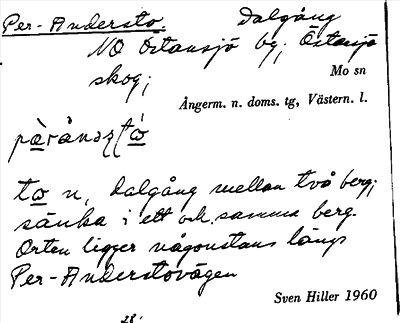 Per-Andersto. Dalgång
NO Östansjö by; Östansjö
skog;
Mo sn
Ångerm. n. doms. tg, Västern. l.
to n, dalgång mellan två berg;
sänka i ett och samma berg.
Orten ligger någonstans längs
Per-Anderstovägen
Sven Hiller 1960
28.